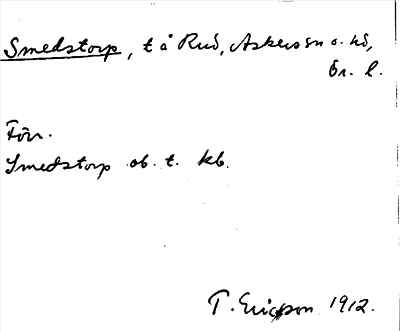 Smedstorp, t å Rud, Askerssn o. hd,
Ör. l.
Förr.
Smedstorp ob. t. kb.
T. Ericson 1912.